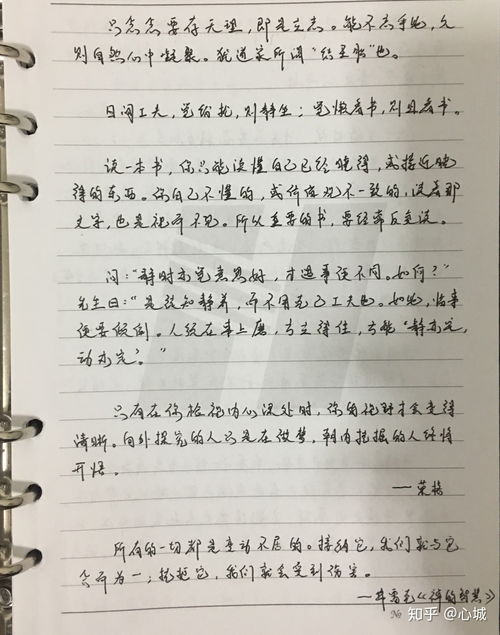 只念念要存天理，即是立志。能不忘乎此，久
则自然心中凝聚。犹道家所谓“结圣胎”也。
日间工夫，觉纷扰，则静坐；觉懒看书，则且看书。
读一本书，你只能读懂自己已经晓得，或接近晓
得的东西。你自己不懂的，或价值观不一致的，没看那
文字，也是视而不见。所以重要的书，要经常反复读。
问：“静时亦觉意思好，才遇事便不同。如何？”
先生曰：“是徒知静养，而不用克己工夫也。如此，临事
便要倾倒。人须在事上磨，方立得住，方能‘静亦定，
动亦定’。”
只有在你检视内心深处时，你的视野才会变得
清晰。向外探究的人只是在做梦，朝内挖掘的人终将
开悟。
——荣格
所有的一切都是变动不居的。接纳它，我们就与它
合而为一；抗拒它，我们就会受到伤害。
《禅的智慧》
No
知乎 @心城